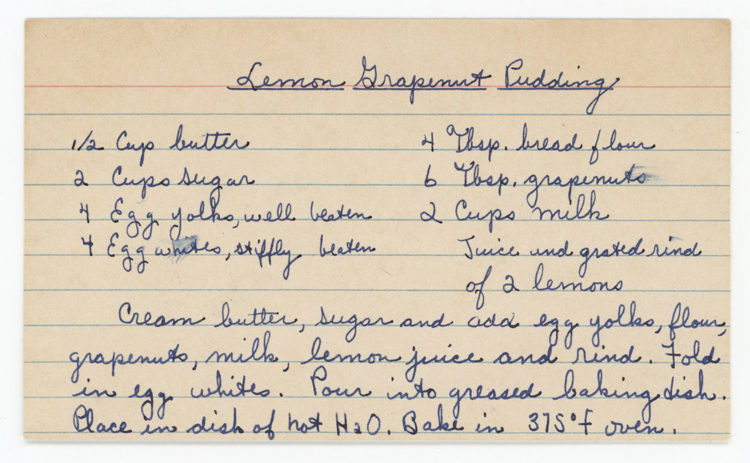 Lemon Grapenut Pudding
1/2 Cup butter
2 Cups sugar
4 Egg yolks, well beaten
4 Egg whites, stiffly beaten
4 Tbsp. bread flour
6 Tbsp. grapenuts
2 Cups milk
Juice and grated rind
of 2 lemons
Cream butter, sugar and add egg yolks, flour,
grapenuts, milk, lemon juice and rind. Fold
in egg whites. Pour into greased baking dish.
Place in dish of hot H2O. Bake in 375°F oven.